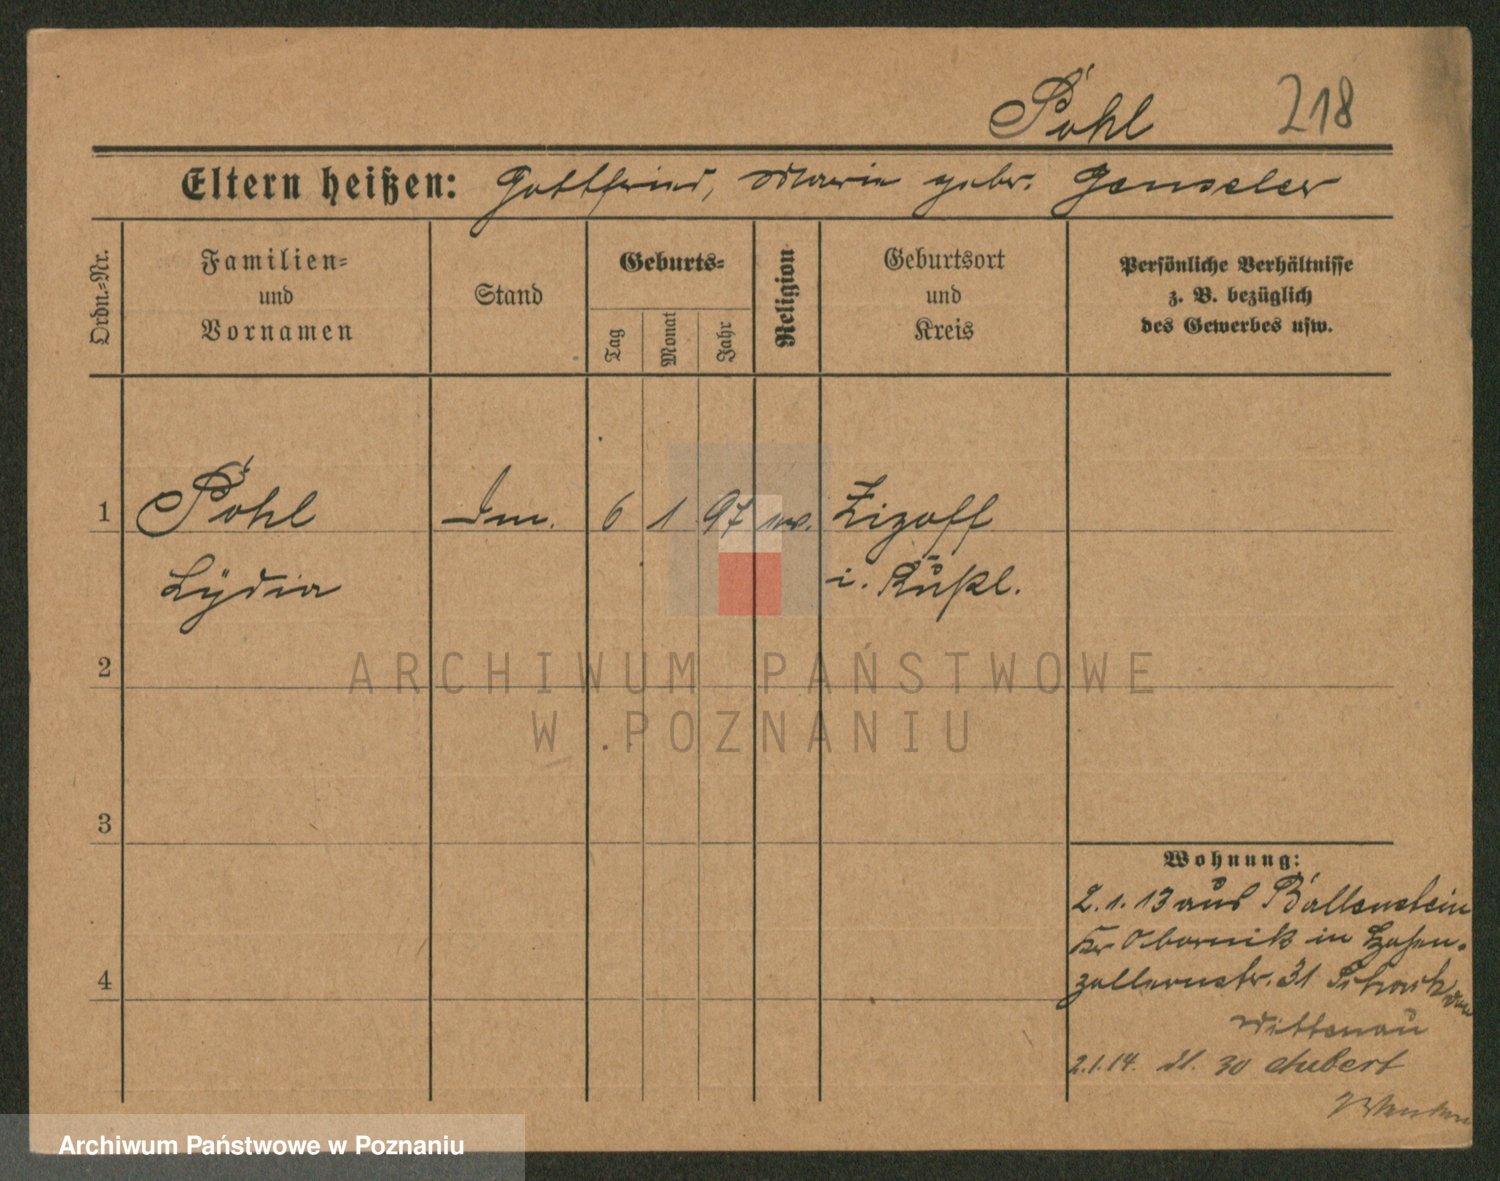 Pohl 218
Eltern heißen: Gottfried, Marie gebr. Genseler
Ordn.-Nr.
Familien-
und
Vornamen
Stand
Geburts-
Tag
Monat
Jahr
Religion
Geburtsort
und
Kreis
Persönliche Verhältnisse
z. B. bezüglich
des Gewerbes usw.
1 Pohl 6 1 97
Lydia i. Rußl.
2
ARCHIWUM PAŃSTWOWE
W POZNANIU
3
Wohnung:
2.1.13 aus Ballenstein
Kr Obornik in Hohen-
4 zollernstr. 31
Wittenau
2.1.14. 30
Archiwum Państwowe w Poznaniu